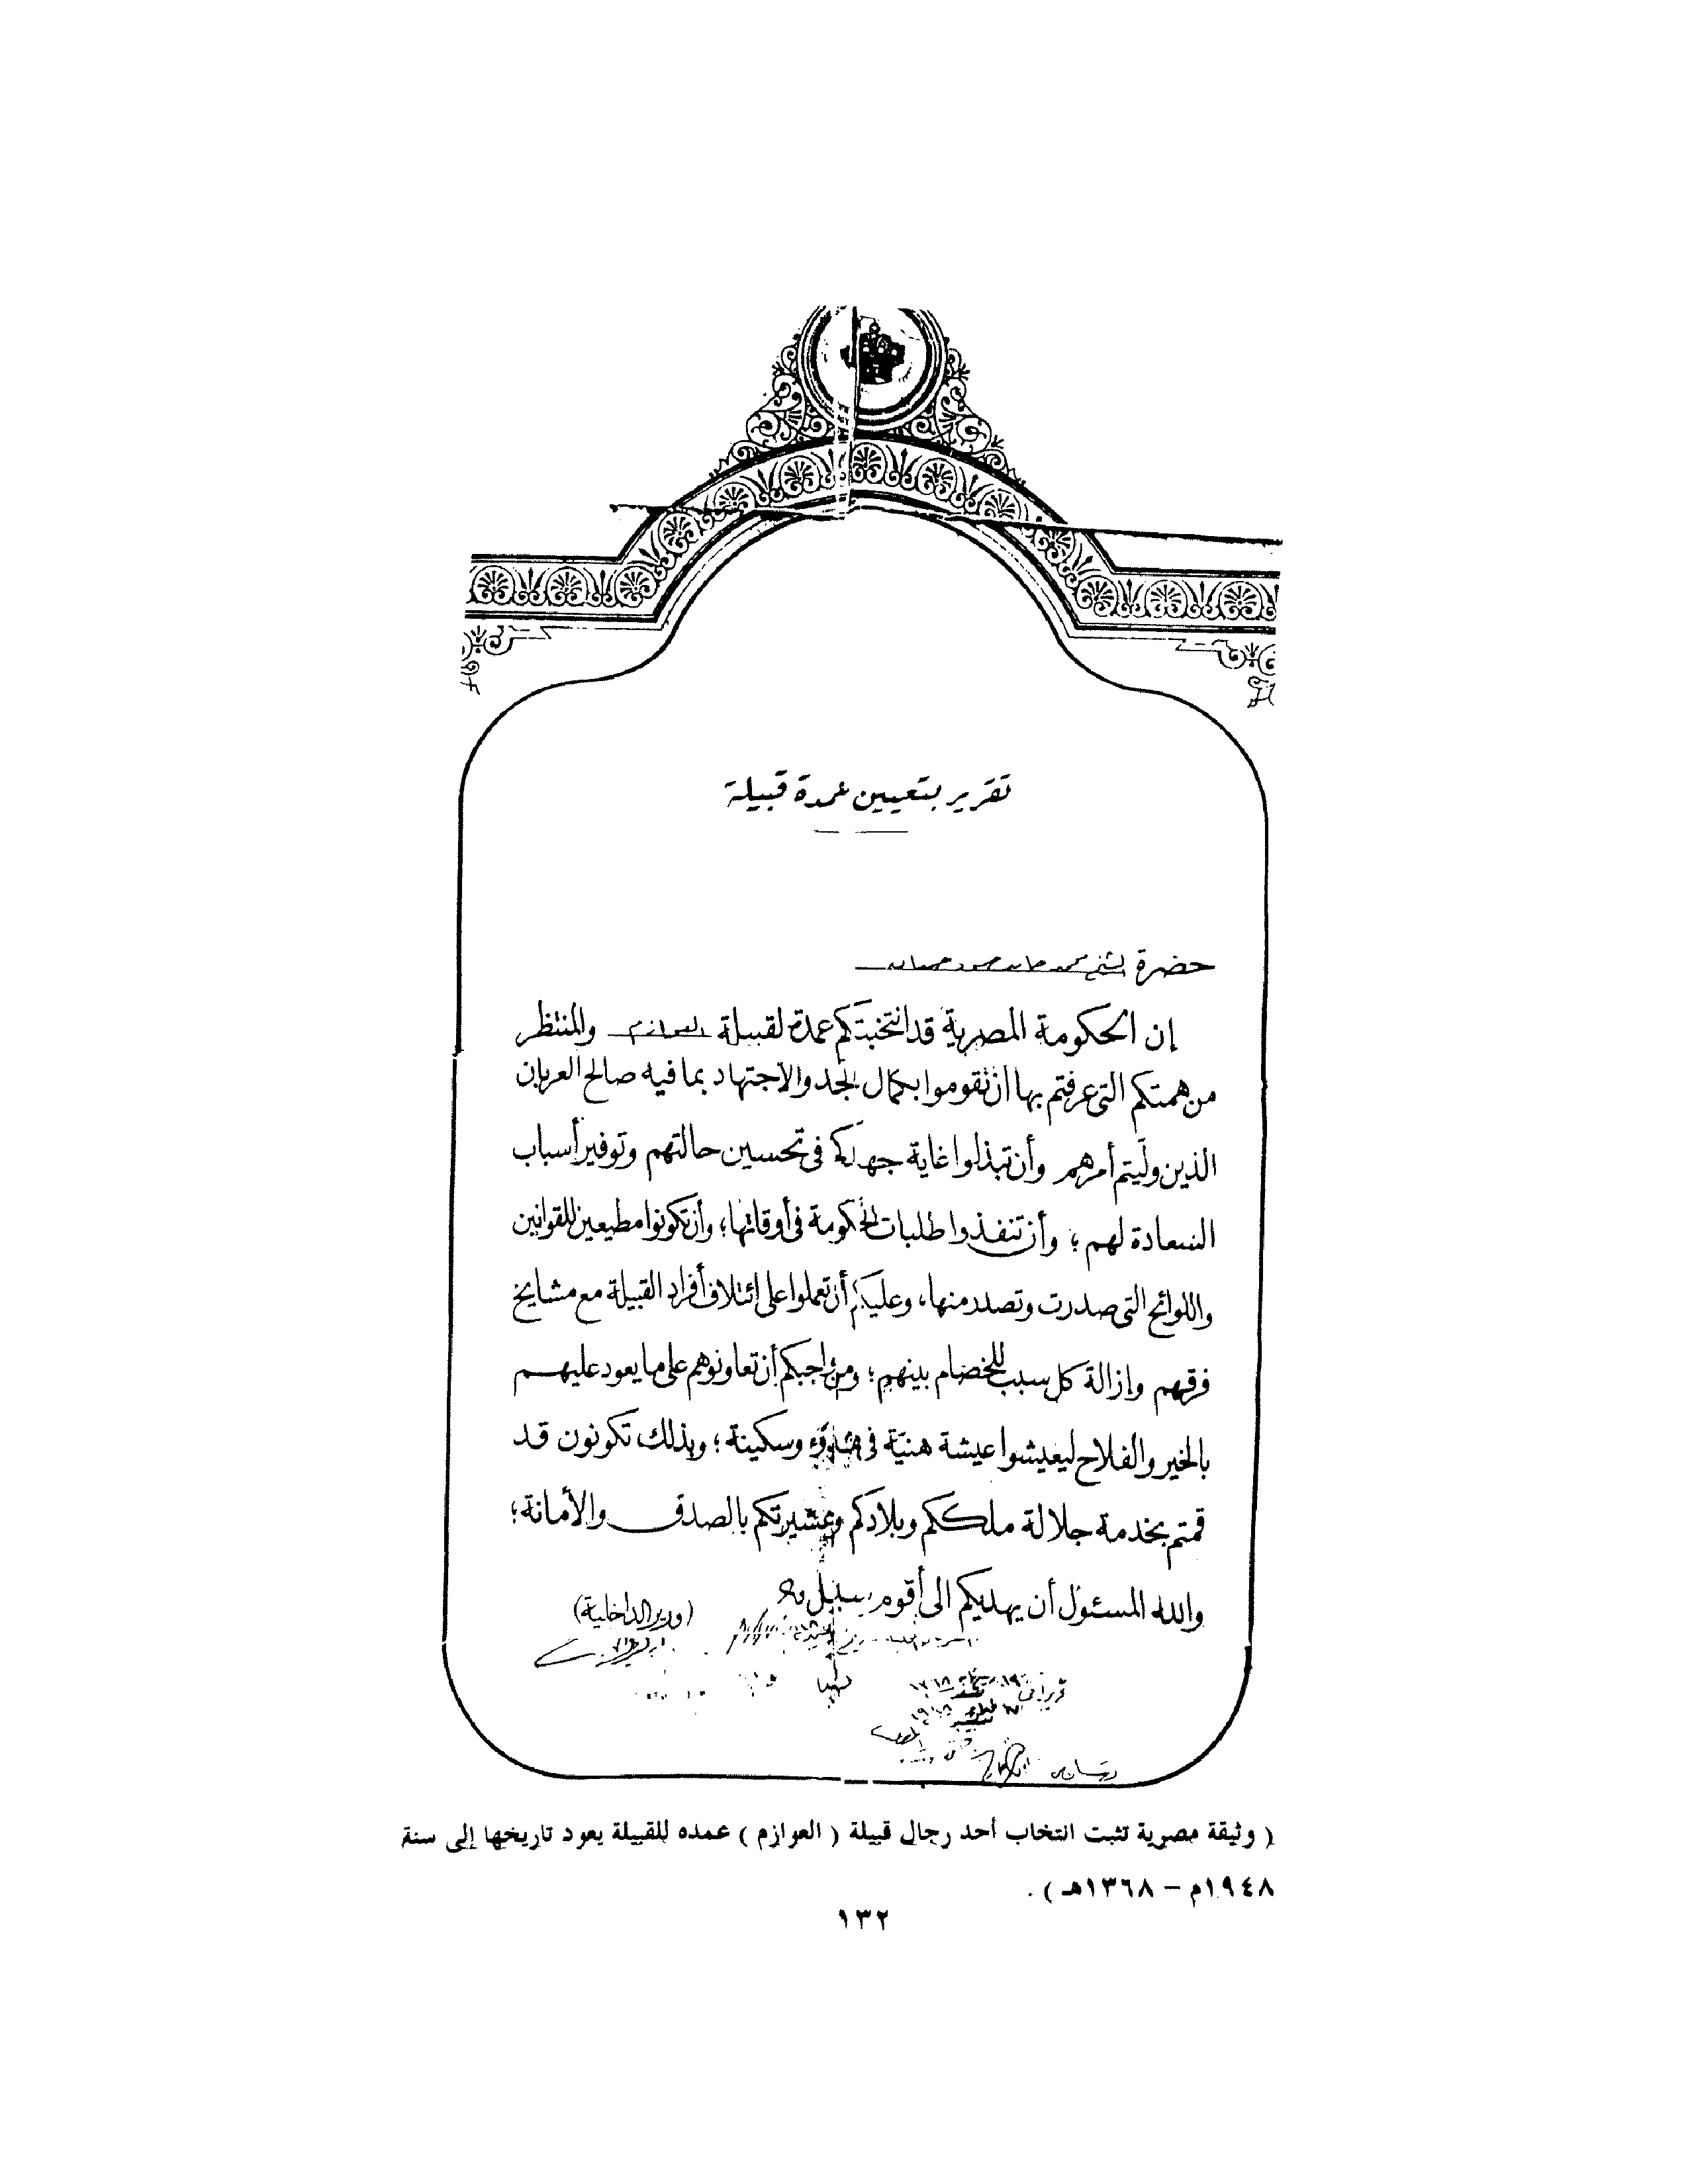 تقرير بتعيين عمدة قبيلة
حضرة الشيخ محمد حامد
إن الحكومة المصرية قد انتخبتكم عمدة لقبيلة العوازم والمنتظر
من همتكم التى عرفتم بها ان تقوموا بكمال الجد والاجتهاد بما فيه صالح العربان
الذين وليتم أمرهم وأن تبذلوا غاية جهدكم فى تحسين حالتهم وتوفير أسباب
السعادة لهم؛ وأن تنفذوا طلبات الحكومة فى أوقاتها؛ وأن تكونوا مطيعين للقوانين
واللوائح التى صدرت وتصدر منها، وعليكم أن تعملوا على ائتلاف أفراد القبيلة مع مشايخ
فرقهم وإزالة كل سبب للخصام بينهم؛ ومن واجبكم أن تعاونوهم على ما يعود عليهم
بالخير والفلاح ليعيشوا عيشة هنيّة فى هدوء وسكينة؛ وبذلك تكونون قد
قمتم بخدمة جلالة ملككم وبلادكم وعشيرتكم بالصدق والأمانة؛
والله المسئول أن يهديكم الى أقوم سبيل
(وزير الداخلية)
( وثيقة مصرية تثبت انتخاب أحد رجال قبيلة ( العوازم ) عمده للقبيلة يعود تاريخها إلى سنة
١٩٤٨م – ١٣٦٨هـ ) .
١٣٢